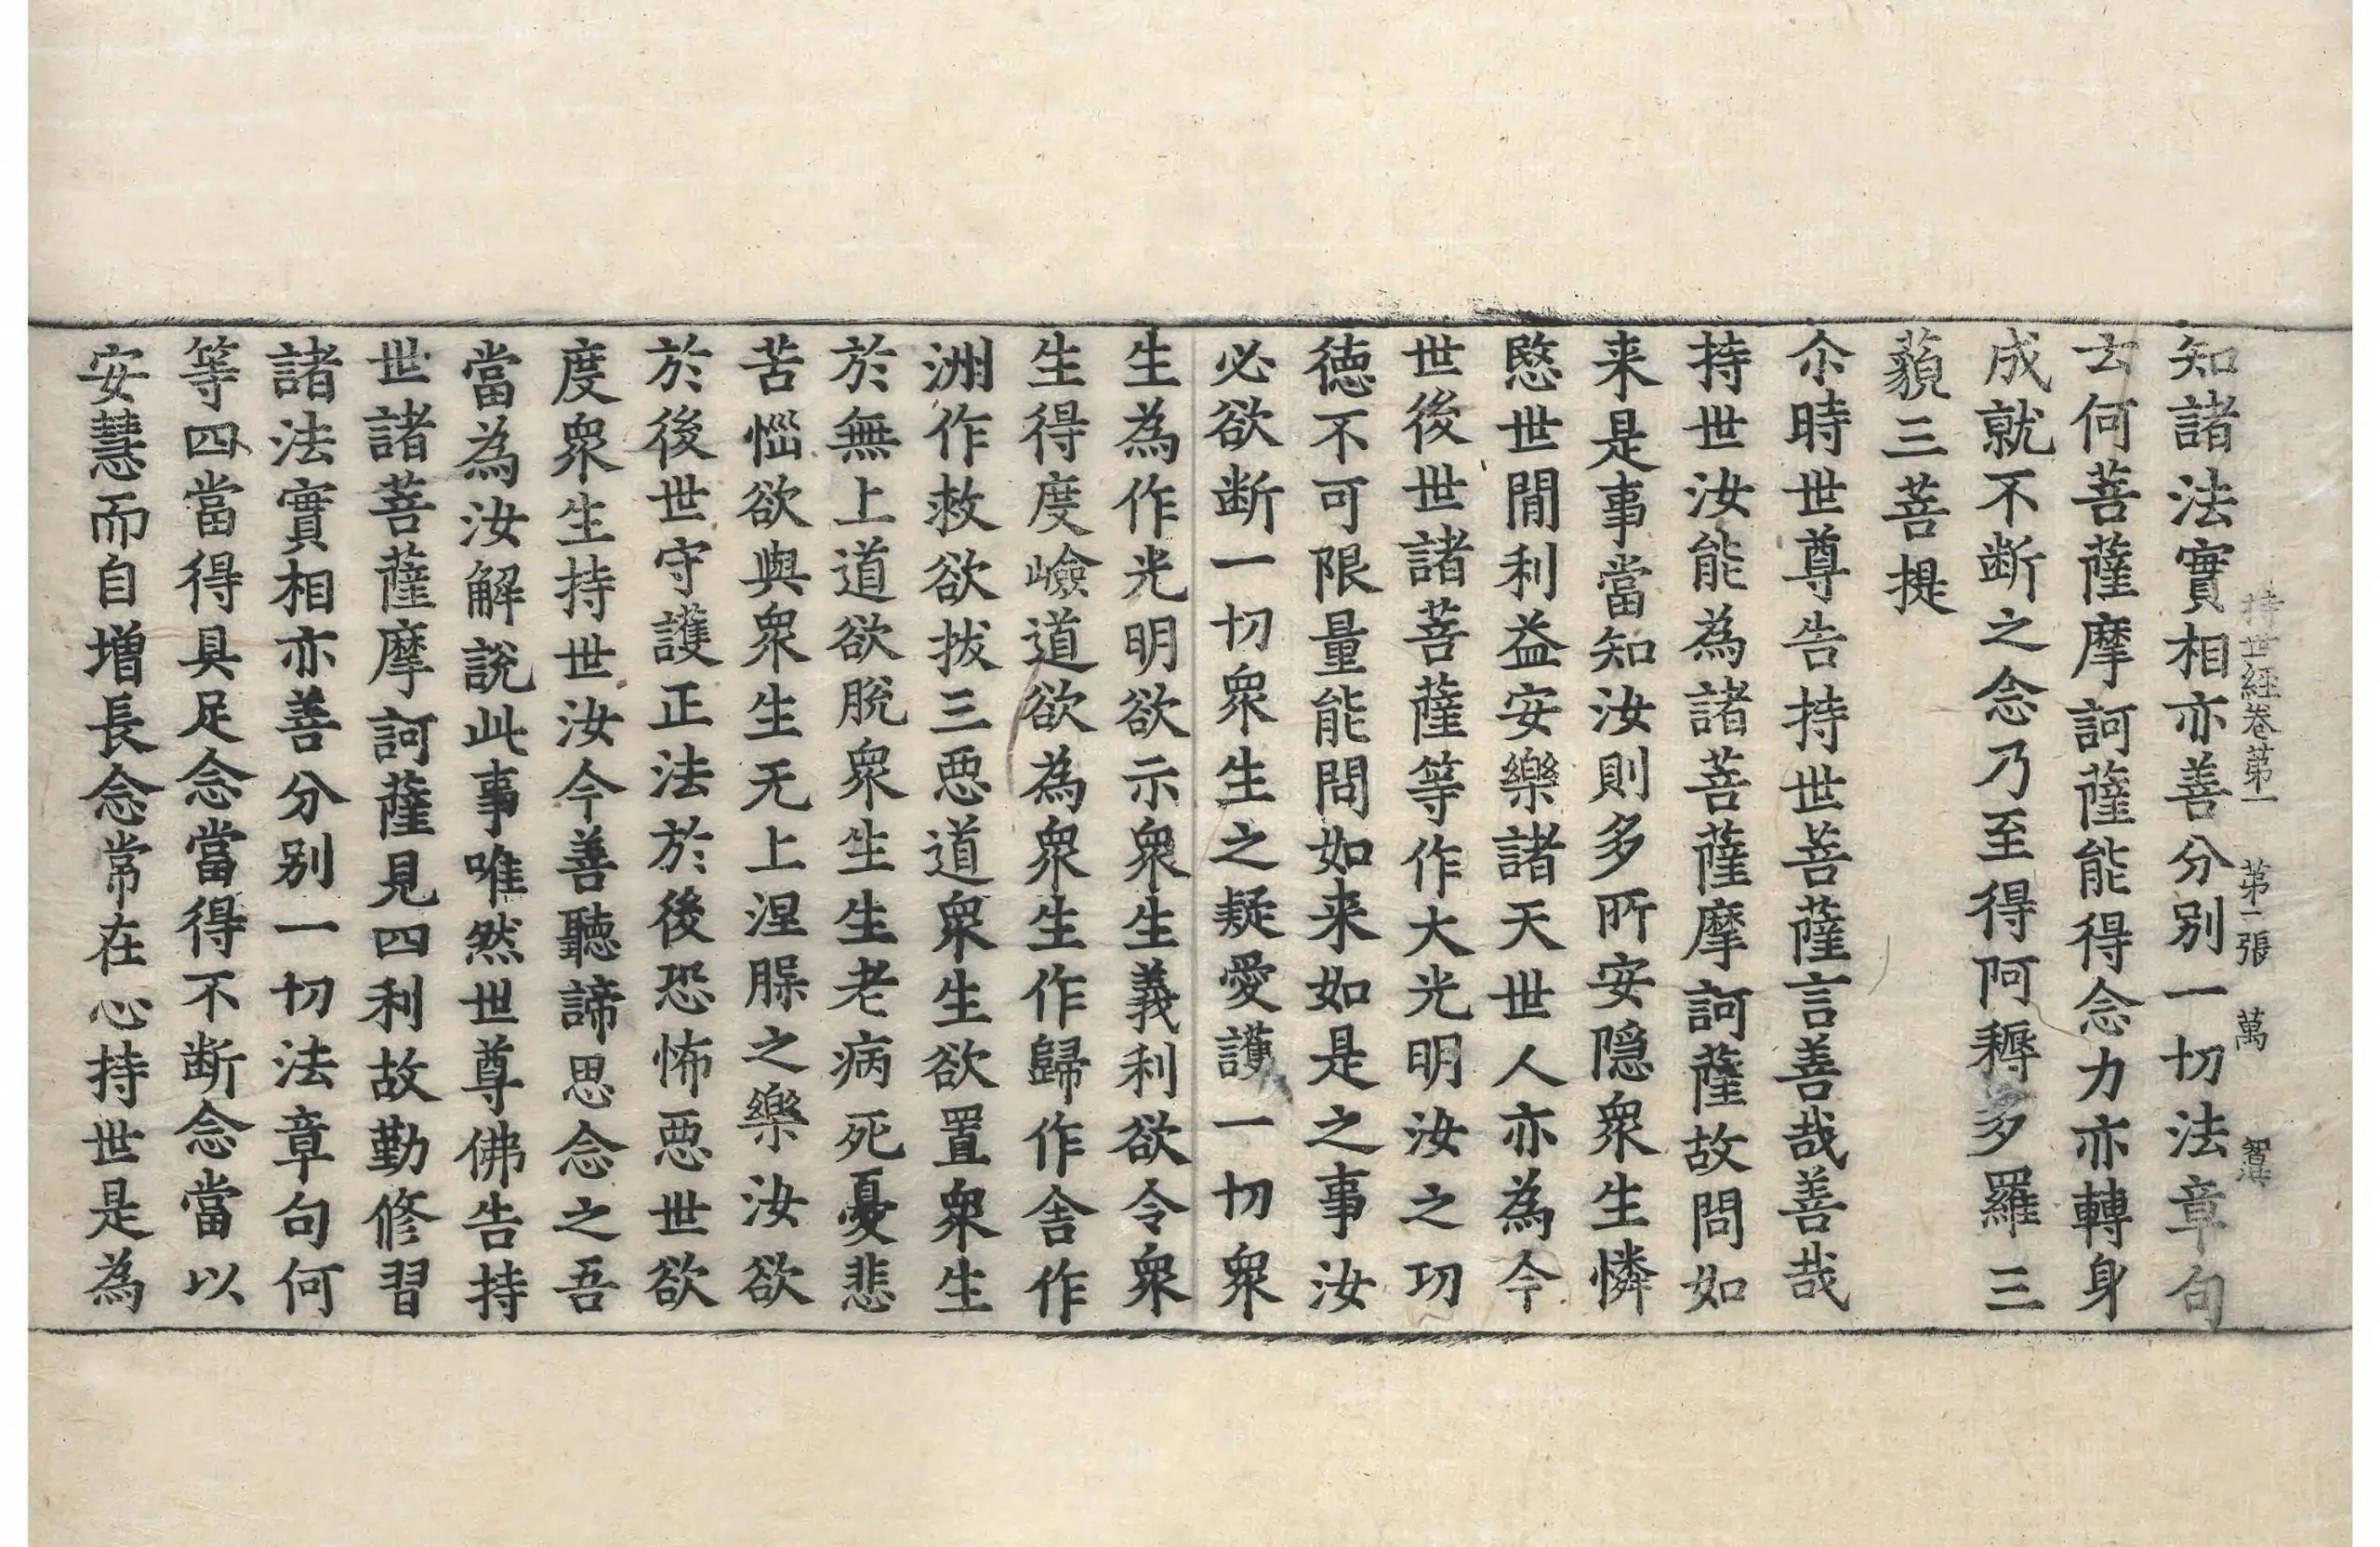 持世経巻苐一　苐一張　萬
知諸法實相亦善分別一切法章句
云何菩薩摩訶薩能得念力亦轉身
成就不断之念乃至得阿耨多羅三
藐三菩提
尒時世尊告持世菩薩言善哉善哉
持世汝能為諸菩薩摩訶薩故問如
来是事當知汝則多所安隠衆生憐
愍世間利益安樂諸天世人亦為今
世後世諸菩薩等作大光明汝之功
徳不可限量能問如来如是之事汝
必欲断一切衆生之疑愛護一切衆
生為作光明欲示衆生義利欲令衆
生得度嶮道欲為衆生作歸作舎作
洲作救欲拔三惡道衆生欲置衆生
於無上道欲脫衆生生老病死憂悲
苦惱欲與衆生无上涅槃之樂汝欲
於後世守護正法於後恐怖惡世欲
度衆生持世汝今善聽諦思念之吾
當為汝解説此事唯然世尊佛告持
世諸菩薩摩訶薩見四利故勤修習
諸法實相亦善分別一切法章句何
等四當得具足念當得不断念當以
安慧而自增長念常在心持世是為